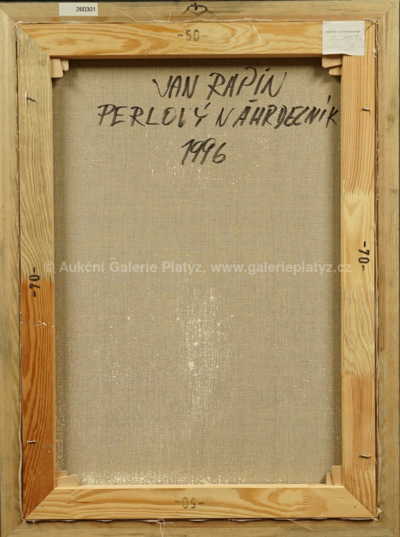 260301
-50-
JAN RAPIN
PERLOVÝ NÁHRDELNÍK
1996
-70-
-70-
© Aukční Galerie Platyz, www.galerieplatyz.cz
-50-